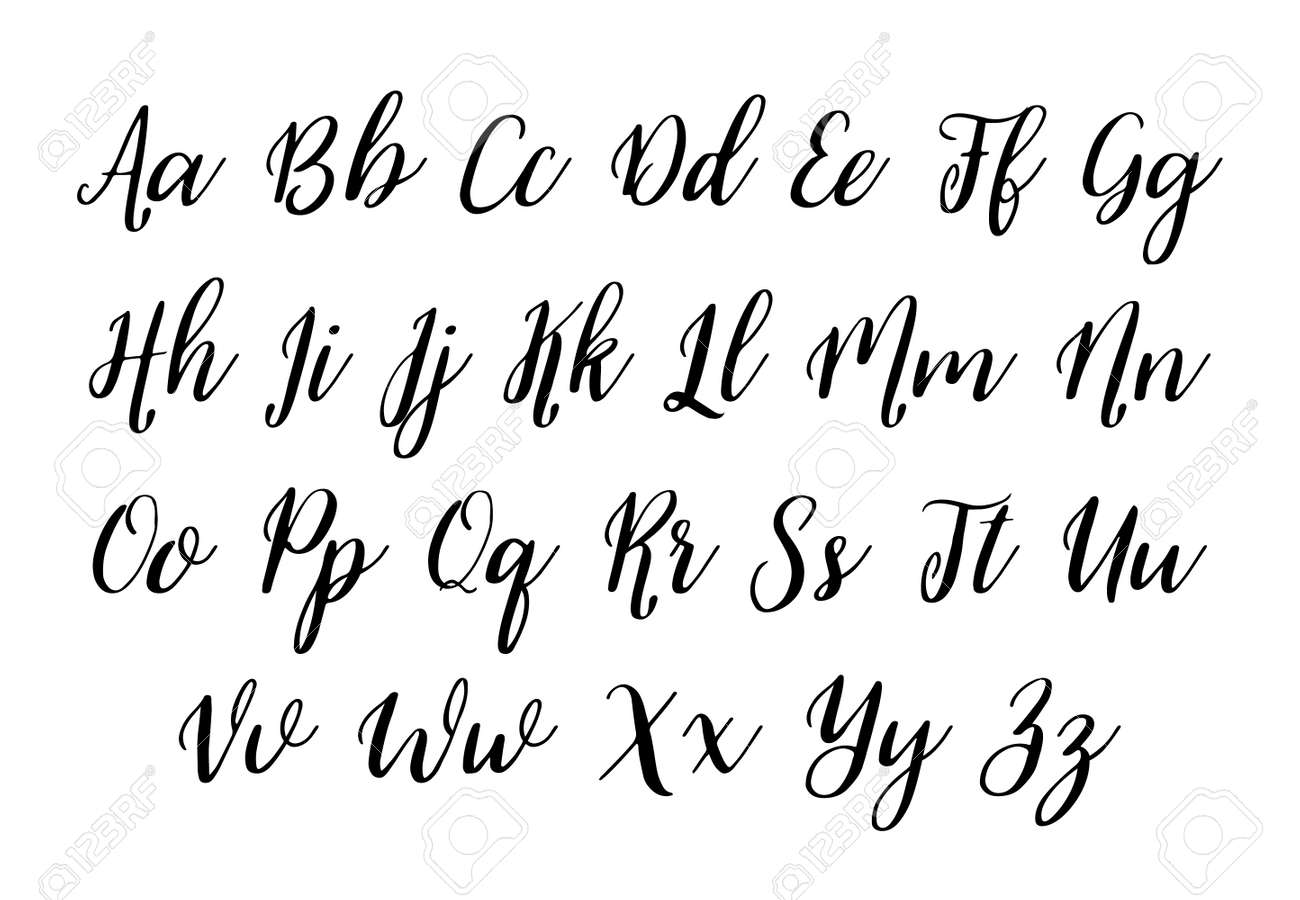 Aa Bb Cc Dd Ee Ff Gg
Hh Ii Jj Kk Ll Mm Nn
Oo Pp Qq Rr Ss Tt Uu
Vv Ww Xx Yy Zz
123RF
123RF
123RF
123RF
123RF
123RF
123RF